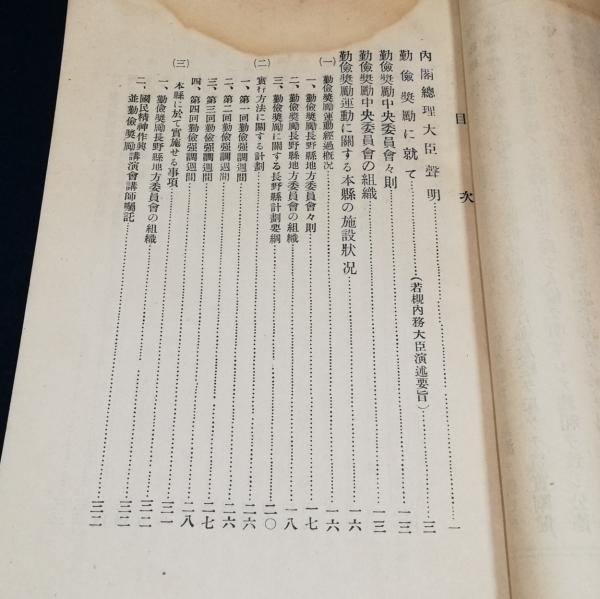 目次
內閣總理大臣聲明……一
勤儉奬勵に就て……(若槻內務大臣演述要旨)……三
勤儉奬勵中央委員會々則……一二
勤儉奬勵中央委員會の組織……一三
勤儉奬勵運動に關する本縣の施設狀況……一六
(一) 勤儉奬勵運動經過槪況……一六
一、勤儉奬勵長野縣地方委員會々則……一七
二、勤儉奬勵長野縣地方委員會の組織……一八
三、勤儉奬勵に關する長野縣計劃要綱……二〇
(二) 實行方法に關する計劃……二六
一、第一回勤儉强調週間……二六
二、第二回勤儉强調週間……二六
三、第三回勤儉强調週間……二七
四、第四回勤儉强調週間……二八
(三) 本縣に於て實施せる事項……三一
一、勤儉奬勵長野縣地方委員會の組織……三二
二、國民精神作興並勤儉奬勵講演會講師囑託……三二